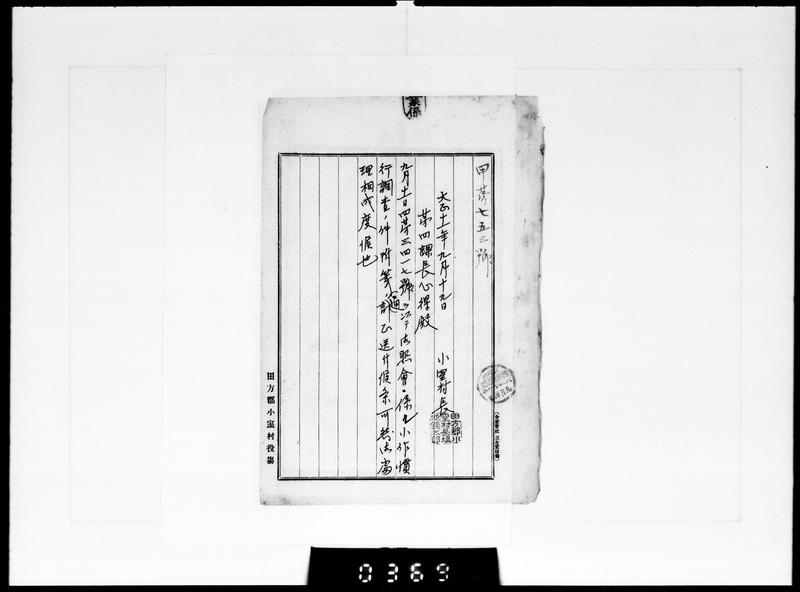 業係
甲第七五三號
大正十一年九月十九日
小室村長
第四課長心得殿
九月十一日四第三四一七號ヲ以テ御照會ニ係ル小作慣
行調査ノ件附箋ノ通訂正送付候条可然御處
理相成度候也
田方郡小室村役場
0369